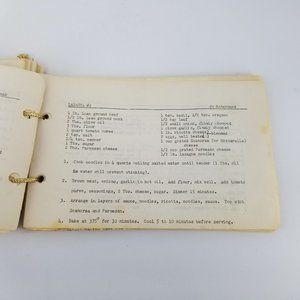 LASAGNA #1
1 lb. lean ground beef
1/2 lb. lean ground pork
2 Tbs. olive oil
3 Tbs. flour
1 quart tomato puree
1 tsp. salt
1/4 tsp. pepper
1 Tbs. sugar
2 Tbs. Parmesan cheese
1 tsp. basil, 1/2 tsp. oregano
1/2 bay leaf
1/2 small onion, finely chopped
1 clove garlic, finely chopped
1 lb. ricotta cheese
2 eggs, well beated
1 cup grated Scamorza (or Mozzarella)
cheese
1/2 cup grated Parmesan cheese
1/2 lb. lasagna noodles
1. Cook noodles in 4 quarts boiling salted water until tender (1 Tbs. oil
in water will prevent sticking).
2. Brown meat, onions, garlic in hot oil. Add flour, mix well. Add tomato
puree, seasonings, 2 Tbs. cheese, sugar. Simmer 15 minutes.
3. Arrange in layers of sauce, noodles, ricotta, noodles, sauce. Top with
Scamorza and Parmesan.
4. Bake at 375° for 30 minutes. Cool 5 to 10 minutes before serving.